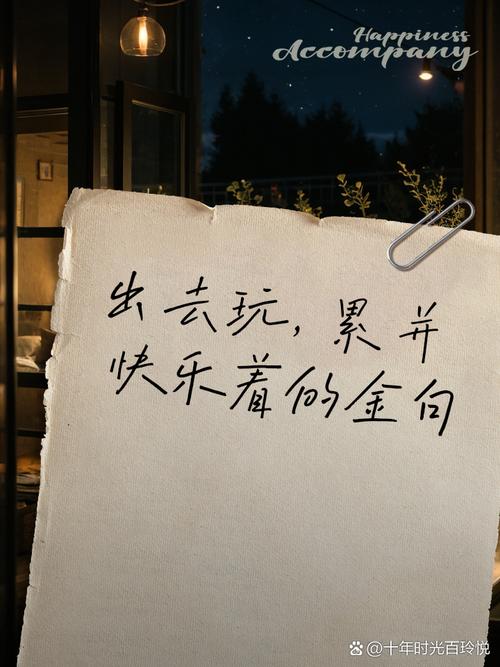 Happiness
Accompany
出去玩,累并
快乐着的金句
@十年时光百玲悦